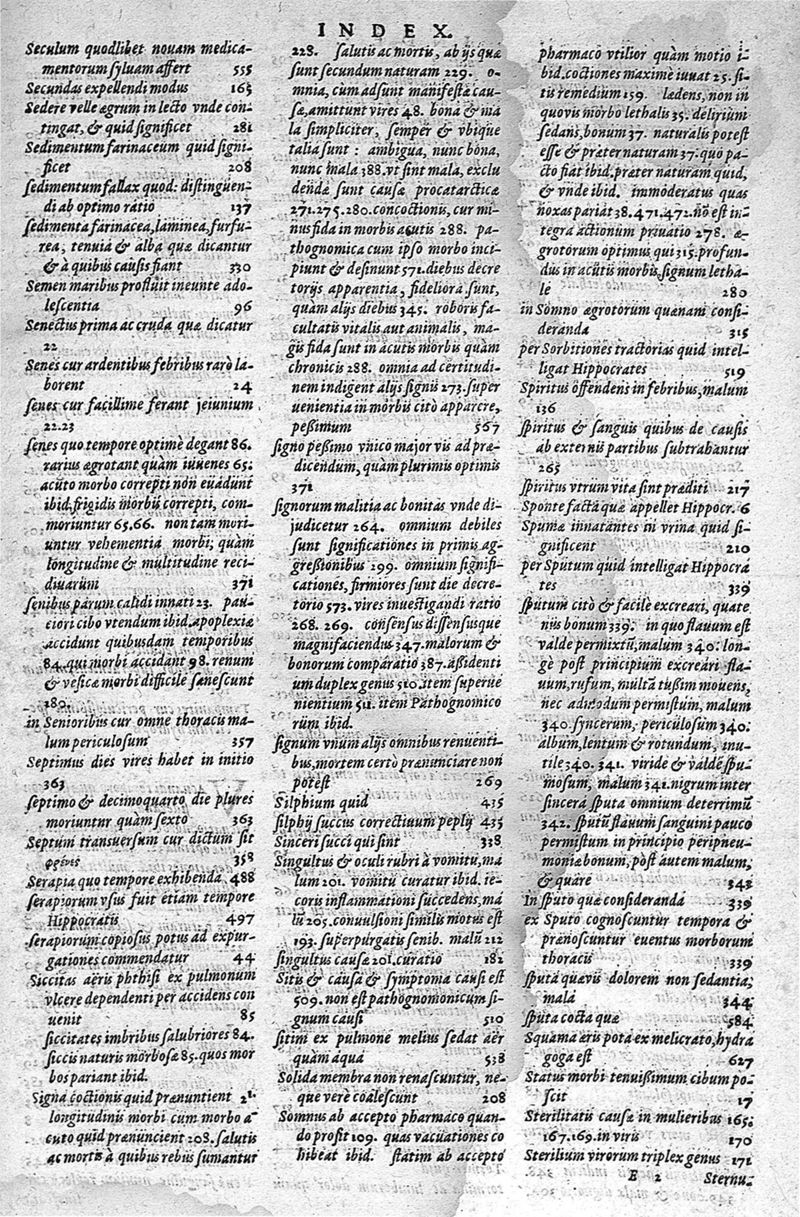 INDEX.
Seculum quodlibet nouam medica-
mentorum syluam affert 555
Secundas expellendi modus 165
Sedere velle ægrum in lecto vnde con-
tingat, & quid significet 281
Sedimentum farinaceum quid signi-
ficet 208
sedimentum fallax quod: distinguen-
di ab optimo ratio 137
sedimenta farinacea, laminea, furfu-
rea, tenuia & alba quæ dicantur
& à quibus causis fiant 330
Semen maribus profluit ineunte ado-
lescentia 96
Senectus prima ac cruda quæ dicatur
22
Senes cur ardentibus febribus rarò la-
borent 24
senes cur facillime ferant ieiunium
22.23
senes quo tempore optimè degant 86.
rarius ægrotant quàm iuuenes 65:
acuto morbo correpti non euadunt
ibid. frigidis morbis correpti, com-
moriuntur 65.66. non tam mori-
untur vehementia morbi; quàm
longitudine & multitudine reci-
diuarum 371
senibus parum calidi innati 23. pau-
ciori cibo vtendum ibid. apoplexiæ
accidunt quibusdam temporibus
84. qui morbi accidant 98. renum
& vesicæ morbi difficile sanescunt
180.
in Senioribus cur omne thoracis ma-
lum periculosum 357
Septimus dies vires habet in initio
363
septimo & decimoquarto die plures
moriuntur quàm sexto 363
Septum transuersum cur dictum sit
φρένες 358
Serapia quo tempore exhibenda 488
serapiorum vsus fuit etiam tempore
Hippocratis 497
serapiorum copiosus potus ad expur-
gationes commendatur 44
Siccitas aëris phthisi ex pulmonum
vlcere dependenti per accidens con
uenit 85
siccitates imbribus salubriores 84.
siccis naturis morbosæ 85. quos mor
bos pariant ibid.
Signa coctionis quid prænuntient 21.
longitudinis morbi cum morbo a-
cuto quid prænuncient 208. salutis
ac mortis à quibus rebus sumantur
228. salutis ac mortis, ab ijs quæ
sunt secundum naturam 229. o-
mnia, cum adsunt manifestæ cau-
sæ, amittunt vires 48. bona & ma
la simpliciter, semper & vbique
talia sunt: ambigua, nunc bona,
nunc mala 388. vt sint mala, exclu
dendæ sunt causæ procatarcticæ
271.275.280. concoctionis, cur mi-
nus fida in morbis acutis 288. pa-
thognomica cum ipso morbo inci-
piunt & desinunt 571. diebus decre
torijs apparentia, fideliora sunt,
quàm alijs diebus 345. roboris fa-
cultatis vitalis aut animalis, ma-
gis fida sunt in acutis morbis quàm
chronicis 288. omnia ad certitudi-
nem indigent alijs signis 273. super
uenientia in morbis citò apparere,
pessimum 567
signo pessimo vnico major vis ad præ-
dicendum, quàm plurimis optimis
371
signorum malitia ac bonitas vnde di-
judicetur 264. omnium debiles
sunt significationes in primis ag-
gressionibus 299. omnium signifi-
cationes, firmiores sunt die decre-
torio 573. vires inuestigandi ratio
268. 269. consensus dissensusque
magnifaciendus 347. malorum &
bonorum comparatio 387. assidenti
um duplex genus 510. item superue
nientium 511. item Pathognomico
rum ibid.
signum vnum alijs omnibus renuenti-
bus, mortem certo prænunciare non
potest 269
Silphium quid 435
silphij succus correctiuum peplij 435
Sinceri succi qui sint 338
Singultus & oculi rubri à vomitu, ma
lum 201. vomitu curatur ibid. ie-
coris inflammationi succedens, ma
lu 205. conuulsioni similis motus est
193. superpurgatis senib. malu 212
singultus causæ 201. curatio 182
Sitis & causa & symptoma causi est
509. non est pathognomonicum si-
gnum causi 510
sitim ex pulmone melius sedat aër
quàm aqua 538
Solida membra non renascuntur, ne-
que verè coalescunt 208
Somnus ab accepto pharmaco quan-
do profit 109. quas vacuationes co
hibeat ibid. statim ab accepto
pharmaco vtilior quàm motio i-
bid. coctiones maximè iuuat 25. si-
tis remedium 159. lædens, non in
quouis morbo lethalis 35. delirium
sedans, bonum 37. naturalis potest
esse & præter naturam 37. quo pa-
cto fiat ibid. præter naturam quid,
& vnde ibid. immoderatus quas
noxas pariat 38.471.472. no est in-
tegra actionum priuatio 278. æ-
grotorum optimus, qui 315. profun-
dus in acutis morbis, signum letha-
le 280
in Somno ægrotorum quænam consi-
deranda 315
per Sorbitiones tractorias quid intel-
ligat Hippocrates 519
Spiritus offendens in febribus, malum
136
spiritus & sanguis quibus de causis
ab externis partibus subtrahantur
265
spiritus vtrum vita sint præditi 217
Sponte facta quæ appellet Hippocr. 6
Spumæ innatantes in vrina quid si-
gnificent 210
per Sputum quid intelligat Hippocra
tes 339
sputum citò & facilè excreari, quate
nus bonum 339: in quo flauum est
valde permixtu, malum 340: lon-
gè post principium excreari fla-
uum, rufum, multa tussim mouens,
nec admodum permistum, malum
340. syncerum, periculosum 340:
album, lentum & rotundum, inu-
tile 340. 341. viride & valde spu-
mosum, malum 341. nigrum inter
sincera sputa omnium deterrimu
342. sputu flauum sanguini pauco
permistum in principio peripneu-
moniæ bonum, post autem malum,
& quare 343
In sputo quæ consideranda 339
ex Sputo cognoscuntur tempora &
prænoscuntur euentus morborum
thoracis 339
sputa quæuis dolorem non sedantia,
mala 344
sputa cocta quæ 584
Squama æris pota ex melicrato, hydra
goga est 627
Status morbi tenuissimum cibum po-
scit 17
Sterilitatis causæ in mulieribus 165.
167.169. in viris 170
Sterilium virorum triplex genus 171
E 2 Sternu-